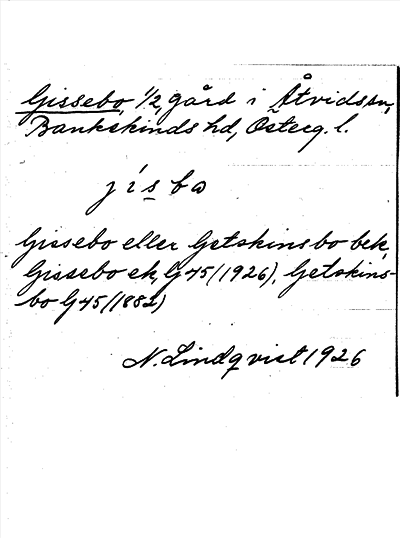 Gissebo, 1/2, gård i Åtvids sn,
Bankekinds hd, Österg. l.
jísbo
Gissebo eller Getskinsbo bek,
Gissebo ek, G 45 (1926), Getskins-
bo G 45 (1882)
N. Lindqvist 1926